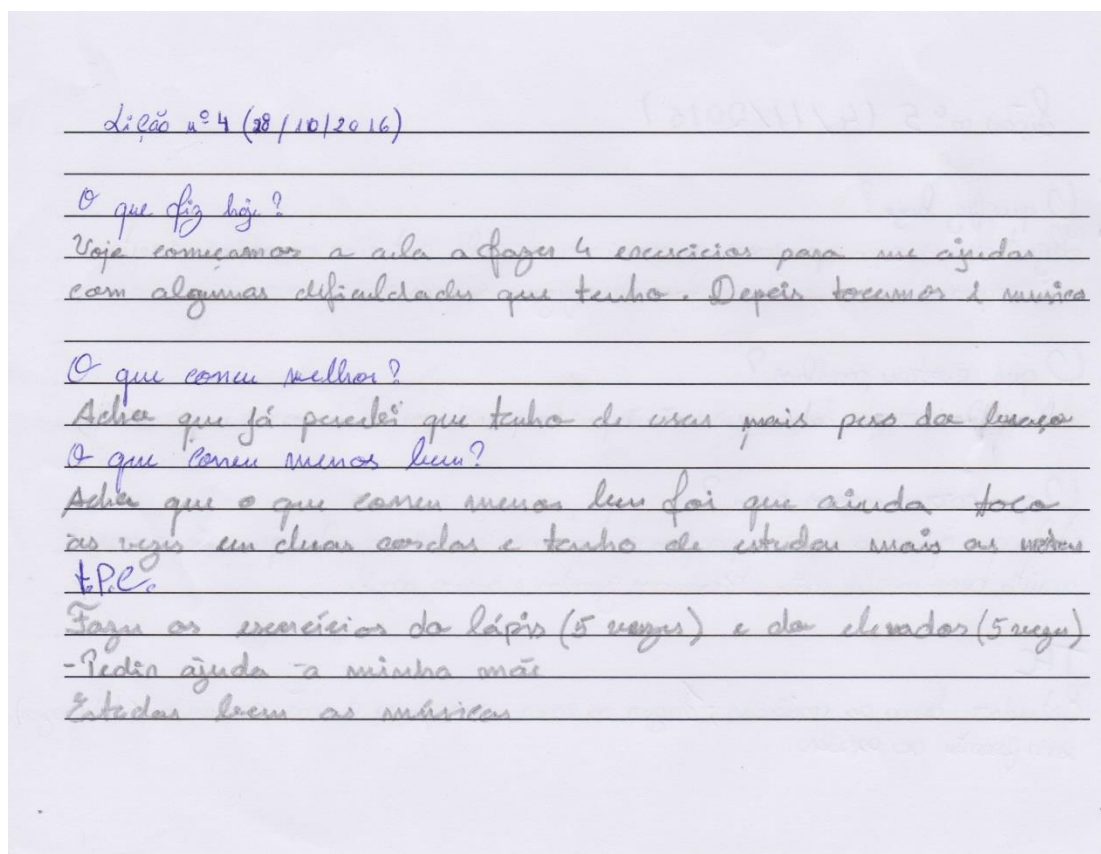 Lição nº 4 (28/10/2016)
O que fiz hoje?
Hoje começamos a aula a fazer 4 exercícios para me ajudar
com algumas dificuldades que tenho. Depois tocamos 1 musica
O que correu melhor?
Acho que já percebi que tenho de usar mais peso do braço
O que correu menos bem?
Acho que o que correu menos bem foi que ainda toco
às vezes em duas cordas e tenho de estudar mais as notas
t.P.C.
Fazer os exercícios do lápis (5 vezes) e do elevador (5 vezes)
-Pedir ajuda a minha mãe
Estudar bem as músicas